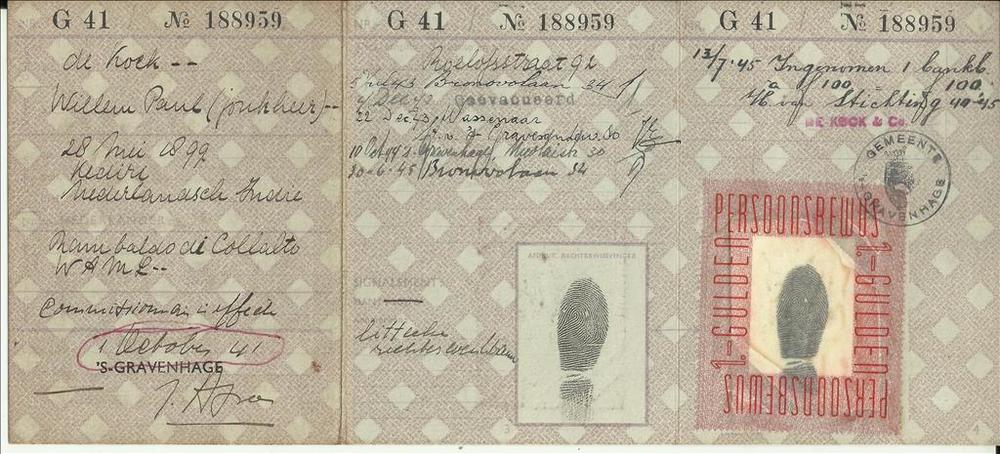 G 41 № 188959
de Kock --
Willem Paul (jonkheer) --
28 Mei 1899
Kediri
Nederlandsch Indië
Rambaldo di Collalto
W A M E --
Commissionair in effecten
1 October 41
'S-GRAVENHAGE
G 41 № 188959
Roelofsstraat 92
Bronovolaan 34
Geevacueerd
22 Dec 43 Wassenaar
10 Oct 44 's-Gravenhage, 30
30-6-45 Bronovolaan 34
SIGNALEMENT
litteken
AFDRUK RECHTERWIJSVINGER
3
G 41 № 188959
13/7-45 Ingenomen 1 bankb.
à f 100 f 100.
Stichting 40-45
DE KOCK & Co.
GEMEENTE
'S-GRAVENHAGE
PERSOONSBEWIJS
1.-GULDEN
1.-GULDEN
PERSOONSBEWIJS
4